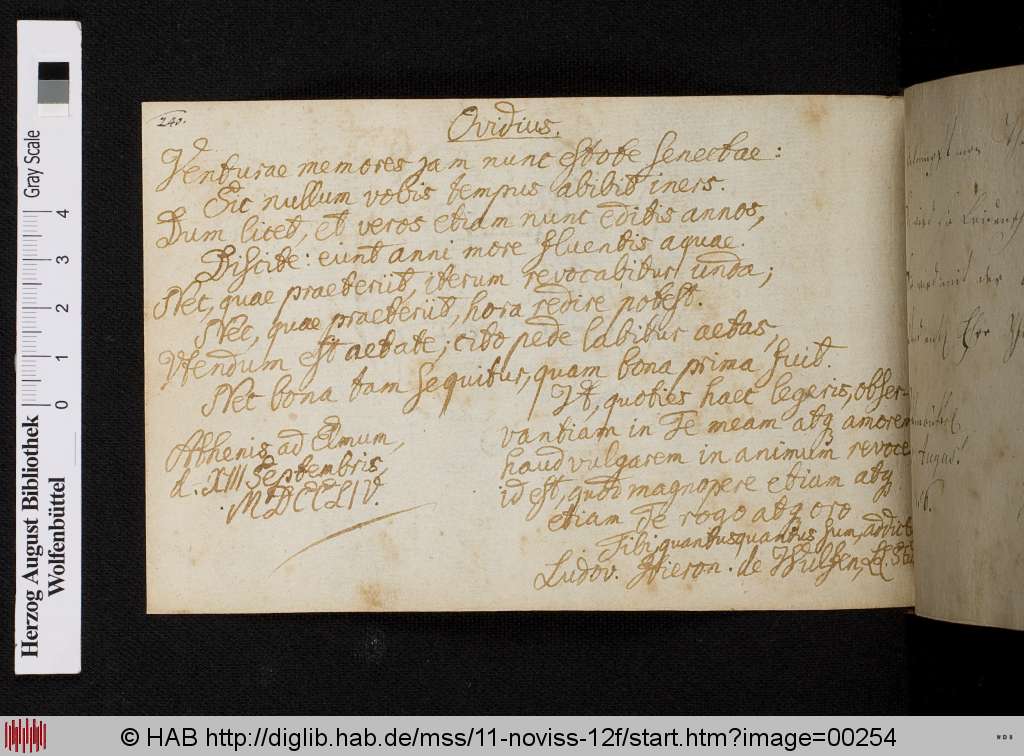 240.
Ovidius.
Venturae memores jam nunc estote senectae:
Sic nullum vobis tempus abibit iners.
Dum licet, et veros etiam nunc editis annos,
Discite: eunt anni more fluentis aquae.
Nec, quae praeteriit, iterum revocabitur unda;
Nec, quae praeteriit, hora redire potest.
Utendum est aetate; cito pede labitur aetas,
Nec bona tam sequitur, quam bona prima fuit.
Ut, quoties haec legeris, obser-
vantiam in Te meam atq amorem
haud vulgarem in animum revoce
id est, quod magnopere etiam atq
etiam Te rogo atq oro
Tibi, quantusquantus sum, addict
Ludov. Hieron. de Wulfen,
Athenis ad Elmum,
d. XIII Septembris,
MDCCLIV.
Gray Scale
4
3
2
1
0
Herzog August Bibliothek
Wolfenbüttel
© HAB http://diglib.hab.de/mss/11-noviss-12f/start.htm?image=00254